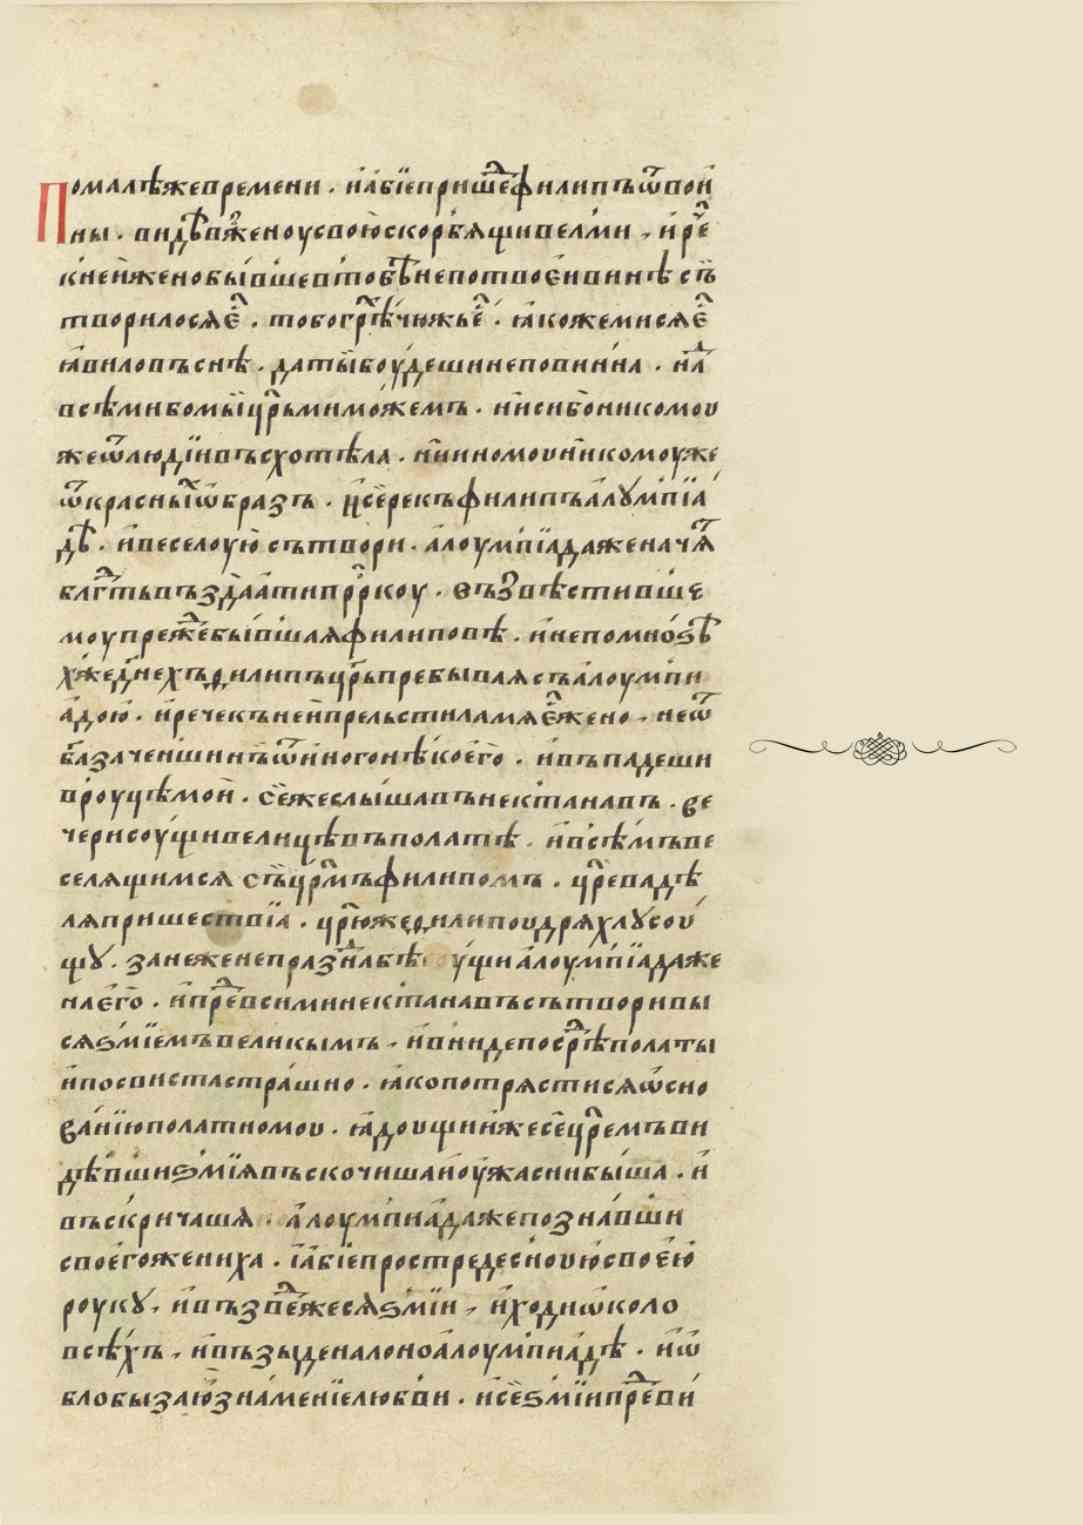 Помалѣжевремени. и҆а҆бїеприше́ⷣфилипъѿвои҆
ны. видѣ́вженоусвою҆скорбѧщивелми, и҆рⷱ҇е
кнеи҆женобы́вшеевтобѣ̀непотвое҆и҆винѣ съ
творилосѧе҆ⷭ҇. тобогрѣ́ⷯчюжье҆ⷭ҇. ꙗ҆кожемисѧе҆ⷭ҇
ꙗ҆виловъснѣ. датыбоу́дешинеповинна. на́ⷣ
всѣмибомыцр҃ьмимо́жемъ. и҆нисибо̀никомоу
жеѿлюдїи҆въсхотѣла. ни҆иномоуни҆комоуже
ѿкрасныⷯѡ҆бразъ. и҆сѐрекъфилипъа҆лꙋмпїа
дѣ̀. и҆веселоую҆ сътвори. а҆лоумпїадаженачѧⷮ
блг҇ⷣтьвъзда̀а҆типрⷪ҇ркоу. възвѣстивше
моупреже́ⷣбы́вшаѧфилиповѣ. и҆непомно́ѕѣ
хже́днехъфилипъцр҃ьпребываѧсъа҆лоумпи
а҆дою҆. и҆речекънеи҆прельстиламѧе҆ⷭ҇жено, неѿ
б҃азаченшинъѿи҆ногонѣкое҆го̀. и҆въпадеши
вроуцѣмои҆. сѐжеслы́шавънектанавъ. ве
черисоу́щивелицѣвъполатѣ. и҆всѣ́мъве
селѧщимсѧ съцр҃мъфилипомъ. цр҃евадѣ
лѧпришествїа. цр҃южефилипоудрѧхлꙋсоу́
щꙋ. занеженепразⷣ҇наѣ у́щиа҆лоумпїадаже
наего̀. и҆пре́ⷣвсиминектанавъсътворивы
сѧѕмїемъвеликымъ, и҆внидепосрѣ́ⷣполаты
и҆посвистастра́шно. ꙗ҆копотрѧстисѧѡ҆сно
ва́нїюполатномоу. ꙗ҆доущиижесѐцр҃емъви
дѣвшиѕмїѧвъскочишаи҆оу҆жаснибы́ша. и҆
въскричашѧ. а҆лоумпиа́дажепозна́вши
свое҆гожениха. і҆а҆бїепростредесноую҆свое҆ю
роукꙋ, и҆възве́ⷣжесѧѕмїи, и҆ходиѡ҆коло
всѣ́хъ, и҆възыденалоноа҆лоумпиа́дѣ. и҆ѡ҆
блобызаю҆̀зна́менїелюбви. и҆сѐѕмїипре́ⷣви